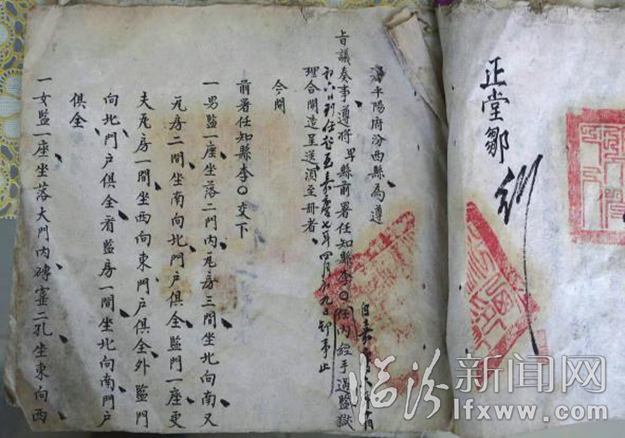 正堂鄒
平陽府汾西縣為遵
旨議奏事遵將卑縣前署任知縣李〇任內經手過監獄
自嘉慶
初六日到任起至嘉慶七年四月十九日卸事止
理合開造呈送須至冊者
今開
前署任知縣李〇交下
一男監一座坐落二門內瓦房三間坐北向南又
瓦房二間坐南向北門戶俱全監門一座更
夫瓦房一間坐西向東門戶俱全外監門
向北門戶俱全看監房一間坐北向南門戶
俱全
一女監一座坐落大門內磚窰二孔坐東向西
临汾新闻网
lfxww.com